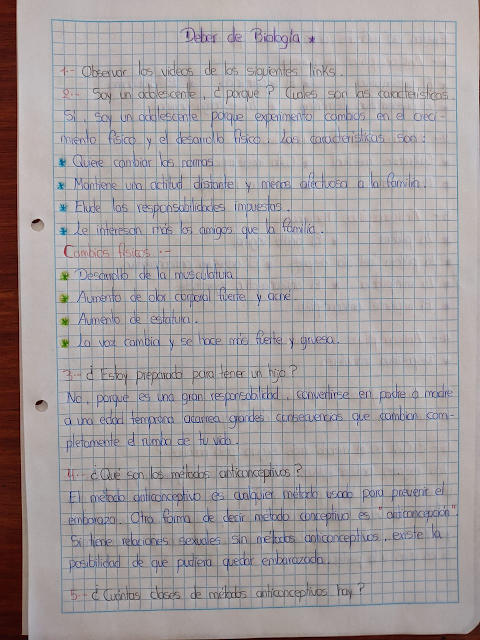 Deber de Biología *
1.- Observar los videos de los siguientes links.
2.- Soy un adolescente, ¿porque? Cuales son las características.
Si, soy un adolescente porque experimento cambios en el creci-
miento físico y el desarrollo físico. Las características son:
* Quiere cambiar las normas
* Mantiene una actitud distante y menos afectuosa a la familia.
* Elude las responsabilidades impuestas.
* Le interesan más los amigos que la familia.
Cambios físicos.-
* Desarrollo de la musculatura
* Aumento de olor corporal fuerte y acné.
* Aumento de estatura.
* La voz cambia y se hace más fuerte y gruesa.
3.- ¿Estoy preparado para tener un hijo?
No, porque es una gran responsabilidad, convertirse en padre o madre
a una edad temprana acarrea grandes consecuencias que cambian com-
pletamente el rumbo de tu vida.
4.- ¿Qué son los métodos anticonceptivos?
El método anticonceptivo es cualquier método usado para prevenir el
embarazo. Otra forma de decir metodo conceptivo es "anticoncepción"
Si tiene relaciones sexuales sin métodos anticonceptivos, existe la
posibilidad de que pudiera quedar embarazada.
5.- ¿Cuántas clases de métodos anticonceptivos hay?